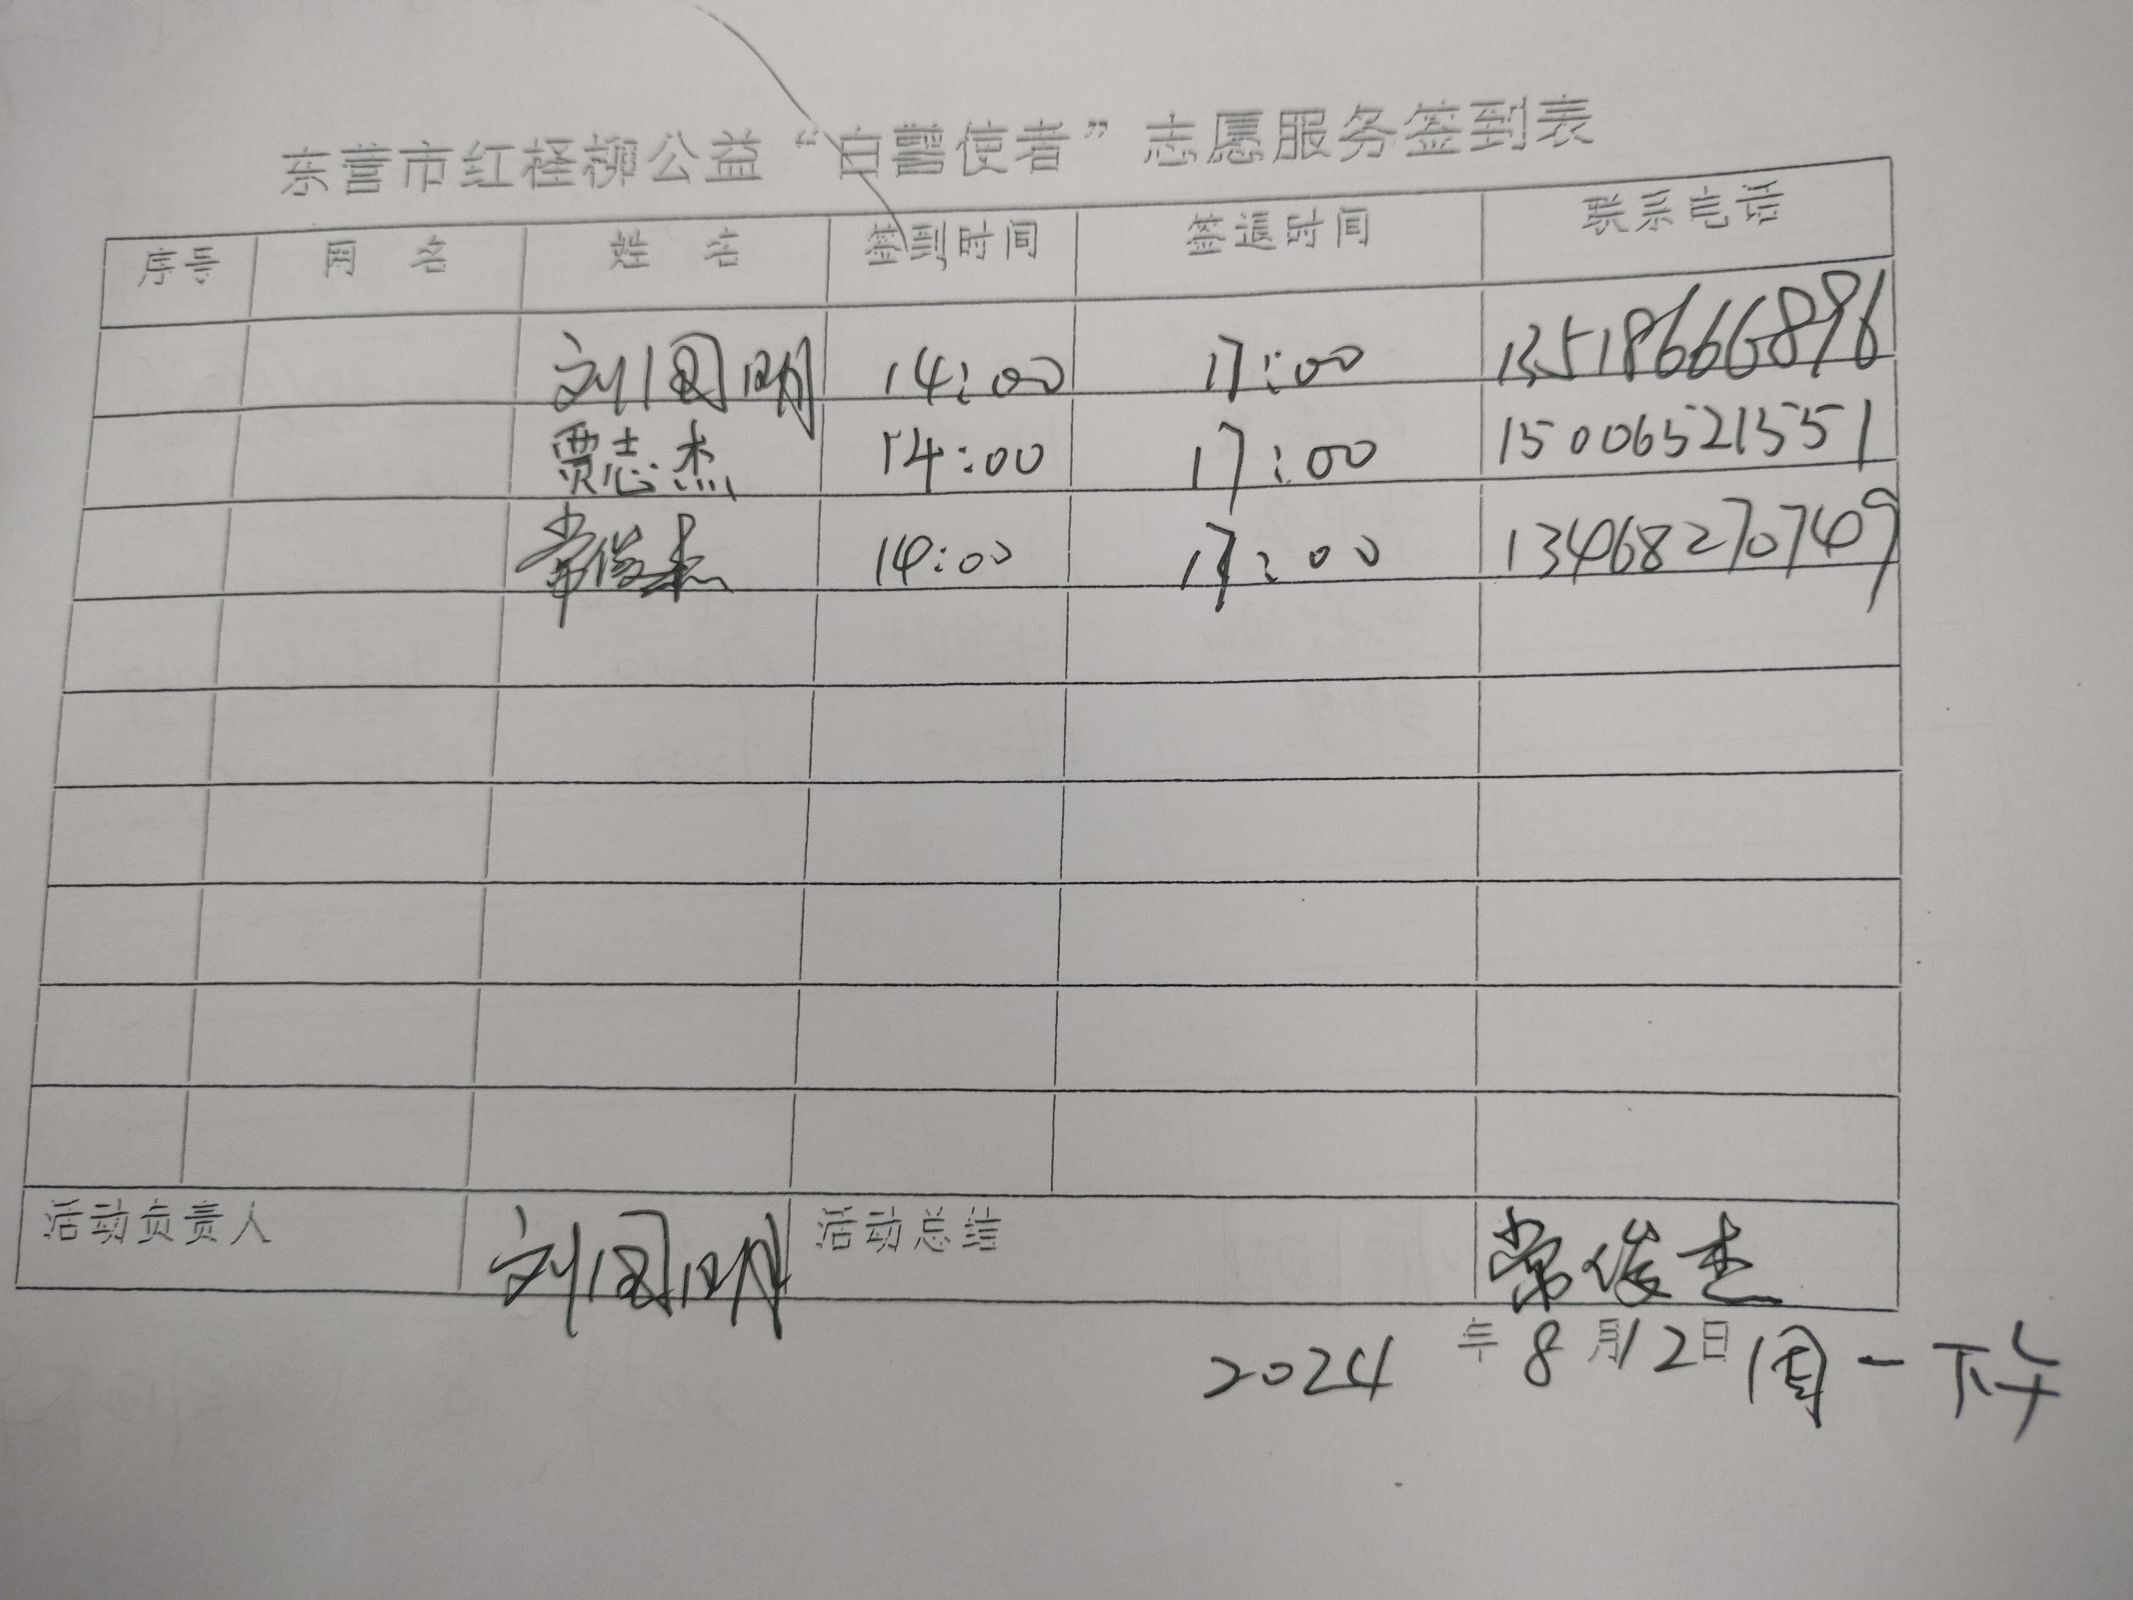 东营市红柽柳公益“白鹭使者”志愿服务签到表
序号 网 名 姓 名 签到时间 签退时间 联系电话
刘国明 14:00 17:00 13518666896
贾志杰 14:00 17:00 15006521551
常俊杰 14:00 17:00 13468270749
活动负责人 刘国明 活动总结 常俊杰
2024 年 8 月 12 日 周一下午